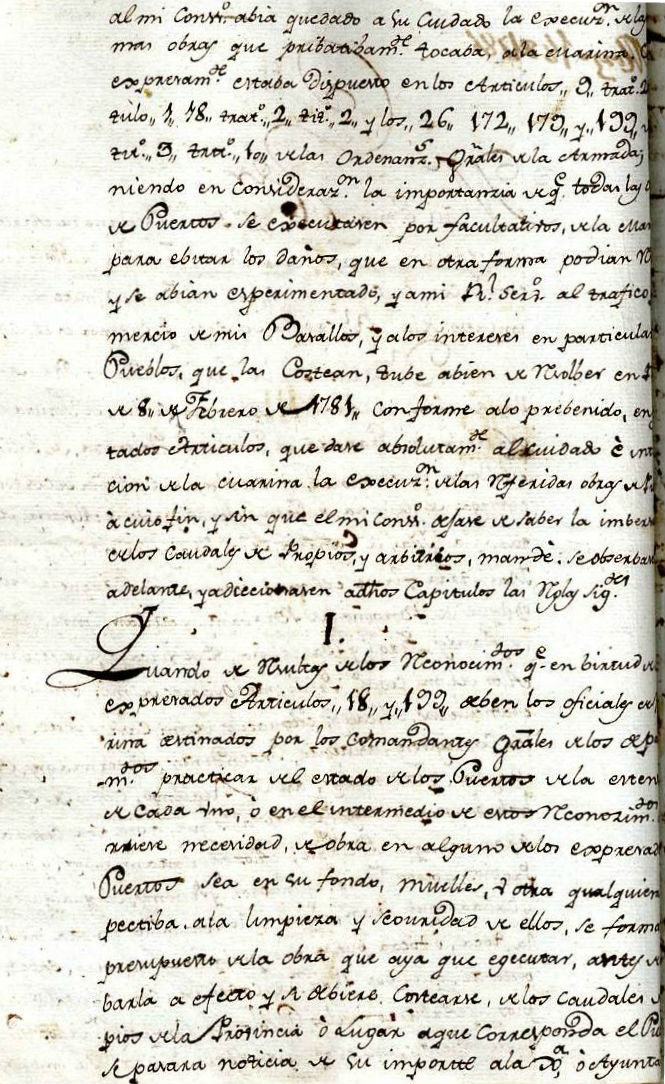 al mi Conso. abia quedado a su Cuidado la execuzn. de las
mas obras que pribatibamte. tocaba, a la Marina.
expresamte. estaba dispuesto en los Articulos,, 9,, trato.
tulo,, 7, 18,, trato.,, 2,, tito.,, 2,, y los,, 26,, 172,, 179,, y,, 199,,
tito.,, 3,, trato.,, 10,, de las Ordenanzs. Grãles de la Armada;
niendo en Considerazon. la importanzia de q̃. todas las
de Puertos se executasen por facultatibos, de la Mar
para ebitar los daños, que en otra forma podian
y se abian experimentado, y a mi Rl. Sero. al trafico
mercio de mis Basallos, y a los intereses en particular
Pueblos, que las Costean, tube a bien de Rsolber en
de 8,, de Febrero de 1781,, Conforme a lo prebenido, en
tados Articulos, quedase absolutamte. al cuidado è
cion de la Marina la execuzon. de las Rferidas obras de
à cuio fin, y sin que el mi Conso. dejase de saber la imber
de los Caudales de Propios, y arbitrios, mandè. se observas
adelante, y adiccionasen a dhos Capitulos las Rglas sigtes.
I.
Quando de Rsultas de los Rconocimtos. qe. en birtud
expresados Articulos,, 18,, y,, 199,, deben los oficiales de
rina destinados por los Comandantes Grãles de los
mtos practicar del estado de los Puertos de la esten
de Cada Vno, ò en el intermedio de estos Rconozimtos.
necesidad, de obra en alguno de los expresad
Puertos sea en su fondo, muelles, ù otra qualquier
pectiba. a la limpieza y seguridad de ellos, se forma
presupuesto de la obra que aya que egecutar, antes
barla a efecto y si debiere Costearse, de los Caudales
pios de la Probincia ò Lugar a que Corresponda el Pu
se pasara noticia de su importte a la ò Ayunta